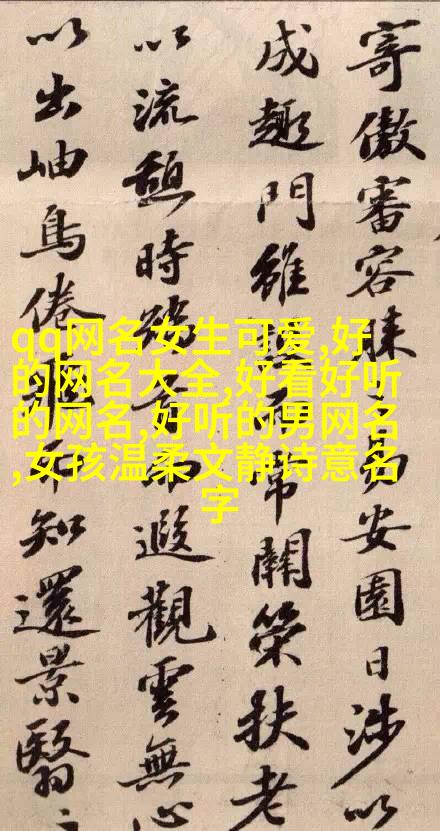 寄傲審容膝易安園日涉以
成趣門雖而常關策扶老
以流憩時矯而遐觀雲無心
以出岫鳥倦飛而知還景翳
qq网名女生可爱,好
的网名大全,好看好听
的网名,好听的男网名
,女孩温柔文静诗意名
字